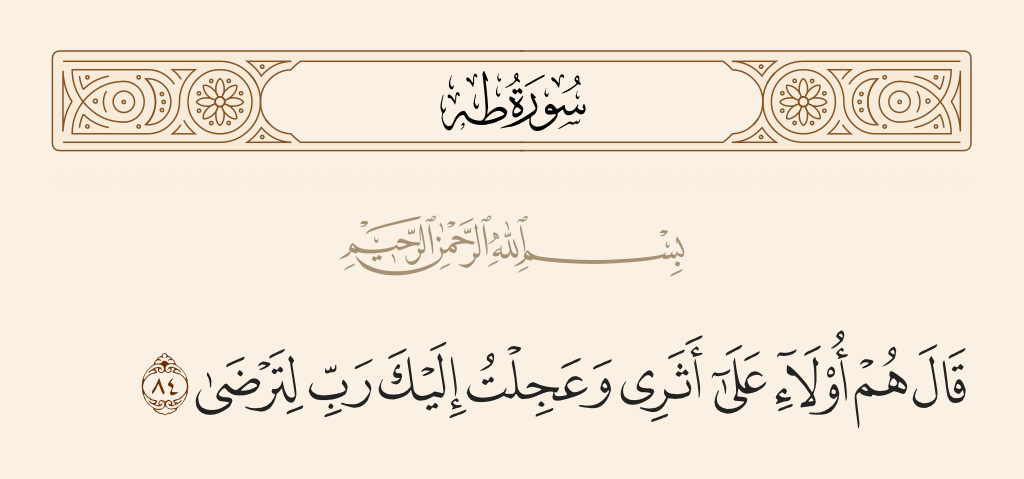 سُورَةُ طه
بِسْمِ ٱللَّهِ ٱلرَّحْمَٰنِ ٱلرَّحِيمِ
قَالَ هُمْ أُوْلَآءِ عَلَىٰٓ أَثَرِى وَعَجِلْتُ إِلَيْكَ رَبِّ لِتَرْضَىٰ ٨٤